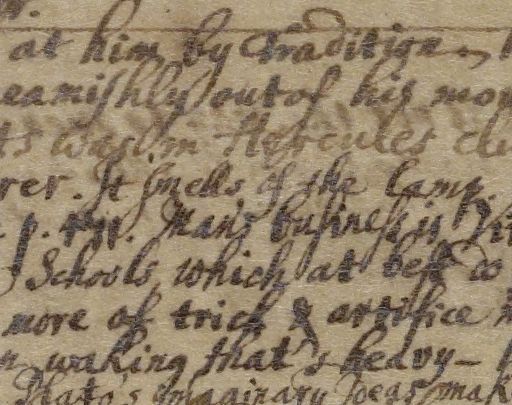 at him by Tradition,
eamishly out of his mou
ts was in Hercules clu
rer. It smells of the lamp
p. Man's business is
Schools, which at best do
more of trick & artifice
n waking that's heavy –
Plato's Imaginary Ideas, mak